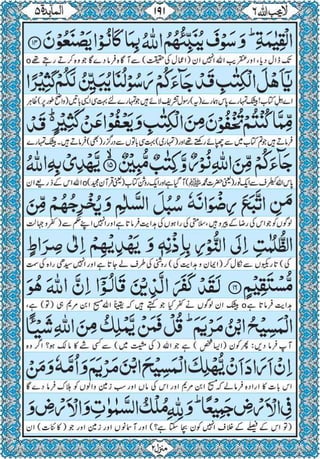 لا یحب اللہ ٦
١٩١
المآئدة ٥
الْقِيٰمَةِ ؕ وَ سَوْفَ يُنَبِّئُهُمُ اللّٰهُ بِمَا كَانُوْا يَصْنَعُوْنَ ۝۱۴
تک ڈال دیا، اور عنقریب اللہ انہیں ان (اعمال کی حقیقت) سے آگاہ فرما دے گا جو وہ کرتے رہتے تھے ۝
يٰۤاَهْلَ الْكِتٰبِ قَدْ جَآءَكُمْ رَسُوْلُنَا يُبَيِّنُ لَكُمْ كَثِيْرًا
اے اہلِ کتاب! بیشک تمہارے پاس ہمارے (یہ) رسول تشریف لائے ہیں جو تمہارے لئے بہت سی ایسی باتیں (واضح طور پر) ظاہر
مِّمَّا كُنْتُمْ تُخْفُوْنَ مِنَ الْكِتٰبِ وَ يَعْفُوْا عَنْ كَثِيْرٍ ؕ۬ قَدْ
فرماتے ہیں جو تم کتاب میں سے چھپائے رکھتے تھے اور (تمہاری) بہت سی باتوں سے درگزر (بھی) فرماتے ہیں۔ بیشک تمہارے
جَآءَكُمْ مِّنَ اللّٰهِ نُوْرٌ وَّ كِتٰبٌ مُّبِيْنٌ ۝۱۵ يَّهْدِيْ بِهِ اللّٰهُ
پاس اللہ کی طرف سے ایک نور (یعنی حضرت محمد ﷺ) آ گیا ہے اور ایک روشن کتاب (یعنی قرآن مجید) ۝ اللہ اس کے ذریعے ان
مَنِ اتَّبَعَ رِضْوَانَهٗ سُبُلَ السَّلٰمِ وَ يُخْرِجُهُمْ مِّنَ
لوگوں کو جو اس کی رضا کے پیرو ہیں، سلامتی کی راہوں کی ہدایت فرماتا ہے اور انہیں اپنے حکم سے (کفر و جہالت
الظُّلُمٰتِ اِلَى النُّوْرِ بِاِذْنِهٖ وَ يَهْدِيْهِمْ اِلٰى صِرَاطٍ
کی) تاریکیوں سے نکال کر (ایمان و ہدایت کی) روشنی کی طرف لے جاتا ہے اور انہیں سیدھی راہ کی سمت
مُّسْتَقِيْمٍ ۝۱۶ لَقَدْ كَفَرَ الَّذِيْنَ قَالُوْۤا اِنَّ اللّٰهَ هُوَ
ہدایت فرماتا ہے ۝ بیشک ان لوگوں نے کفر کیا جو کہتے ہیں کہ یقیناً اللہ مسیح ابن مریم ہی (تو) ہے،
الْمَسِيْحُ ابْنُ مَرْيَمَ ؕ قُلْ فَمَنْ يَّمْلِكُ مِنَ اللّٰهِ شَيْـًٔا
آپ فرما دیں: پھر کون (ایسا شخص) ہے جو اللہ (کی مشیت میں) سے کسی شے کا مالک ہو؟ اگر وہ
اِنْ اَرَادَ اَنْ يُّهْلِكَ الْمَسِيْحَ ابْنَ مَرْيَمَ وَ اُمَّهٗ وَ مَنْ
اس بات کا ارادہ فرما لے کہ مسیح ابن مریم اور اس کی ماں اور سب زمین والوں کو ہلاک فرما دے گا
فِي الْاَرْضِ جَمِيْعًا ؕ وَ لِلّٰهِ مُلْكُ السَّمٰوٰتِ وَ الْاَرْضِ وَ
(تو اس کے فیصلے کے خلاف انہیں کون بچا سکتا ہے؟) اور آسمانوں اور زمین اور جو (کائنات) ان
منزل ٢